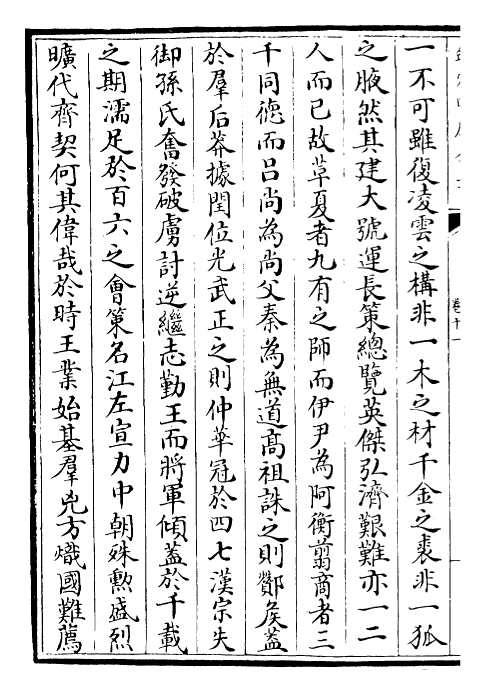 一不可雖復凌雲之構非一木之材千金之裘非一狐
之腋然其建大號運長策總覽英傑弘濟艱難亦一二
人而已故革夏者九有之師而伊尹為阿衡翦商者三
千同德而呂尚為尚父秦為無道髙祖誅之則酇侯蓋
於羣后莽據閏位光武正之則仲華冠於四七漢宗失
御孫氏奮發破虜討逆繼志勤王而將軍傾蓋於千載
之期濡足於百六之會策名江左宣力中朝殊勲盛烈
曠代齊契何其偉哉於時王業始基羣兇方熾國難薦
卷十一